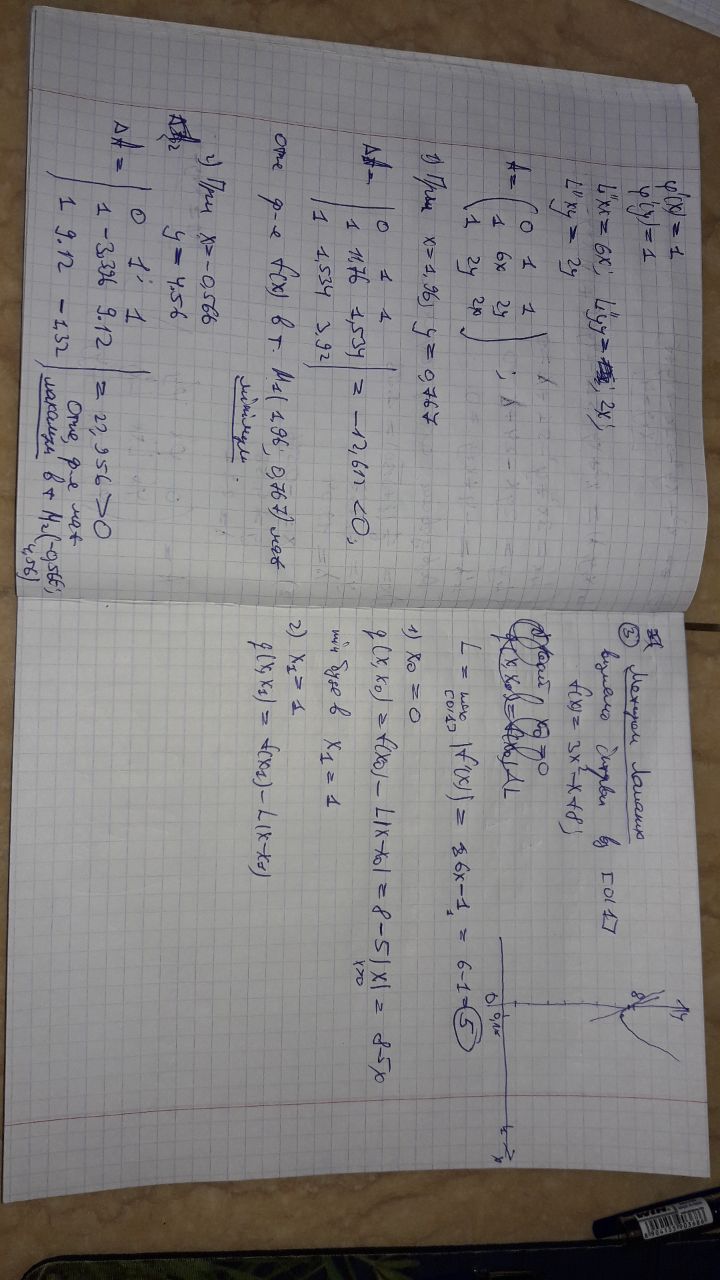 φ'(x) = 1
φ'(y) = 1
L''xx = 6x; L''yy = 2x;
L''xy = 2y
A = (0 1 1
1 6x 2y
1 2y 2x) ;
1) При x = 1.96; y = 0,767
ΔA = |0 1 1
1 11.76 1,534
1 1,534 3,92| = -12,612 < 0,
Отже ф-я f(x) в т. M1 (1,96; 0,767) має
мінімум.
2) При x = -0,566
y = 4.56
ΔA = |0 1 1
1 -3,396 9.12
1 9.12 -1.132| = 22,956 > 0
Отже, ф-я має
максимум в т M2 (-0,566;
4,56)
③ Методом ламаних
[0;1]
f(x) = 3x² - x + 8;
y
8
0
x
x0 = 0
L = max |f'(x)| = 6x - 1 = 6 - 1 = 5
[0;1]
1) x0 = 0
g(x, x0) = f(x0) - L|x - x0| = 8 - 5|x| = 8 - 5x
x>0
min буде в x1 = 1
2) x1 = 1
g(x, x1) = f(x1) - L|x - x1|